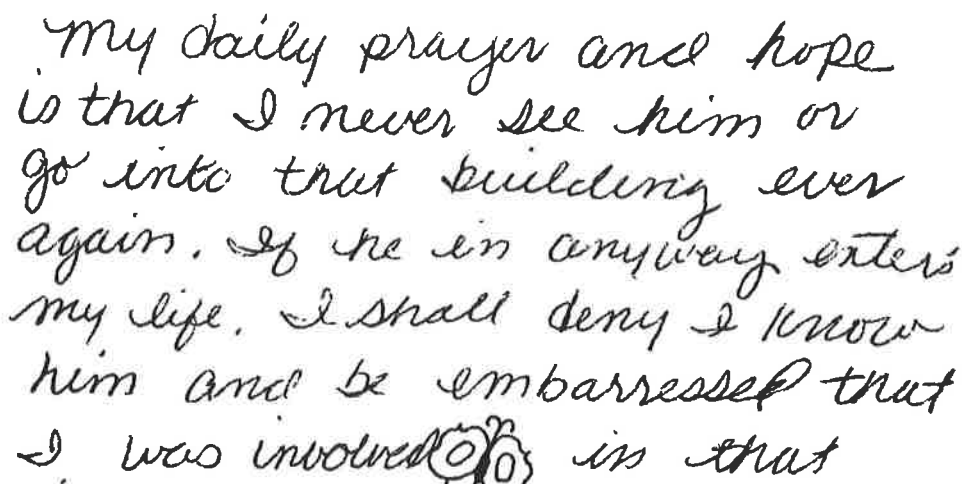 My daily prayer and hope
is that I never see him or
go into that building ever
again. If he in anyway enters
my life. I shall deny I know
him and be embarressed that
I was involved in that